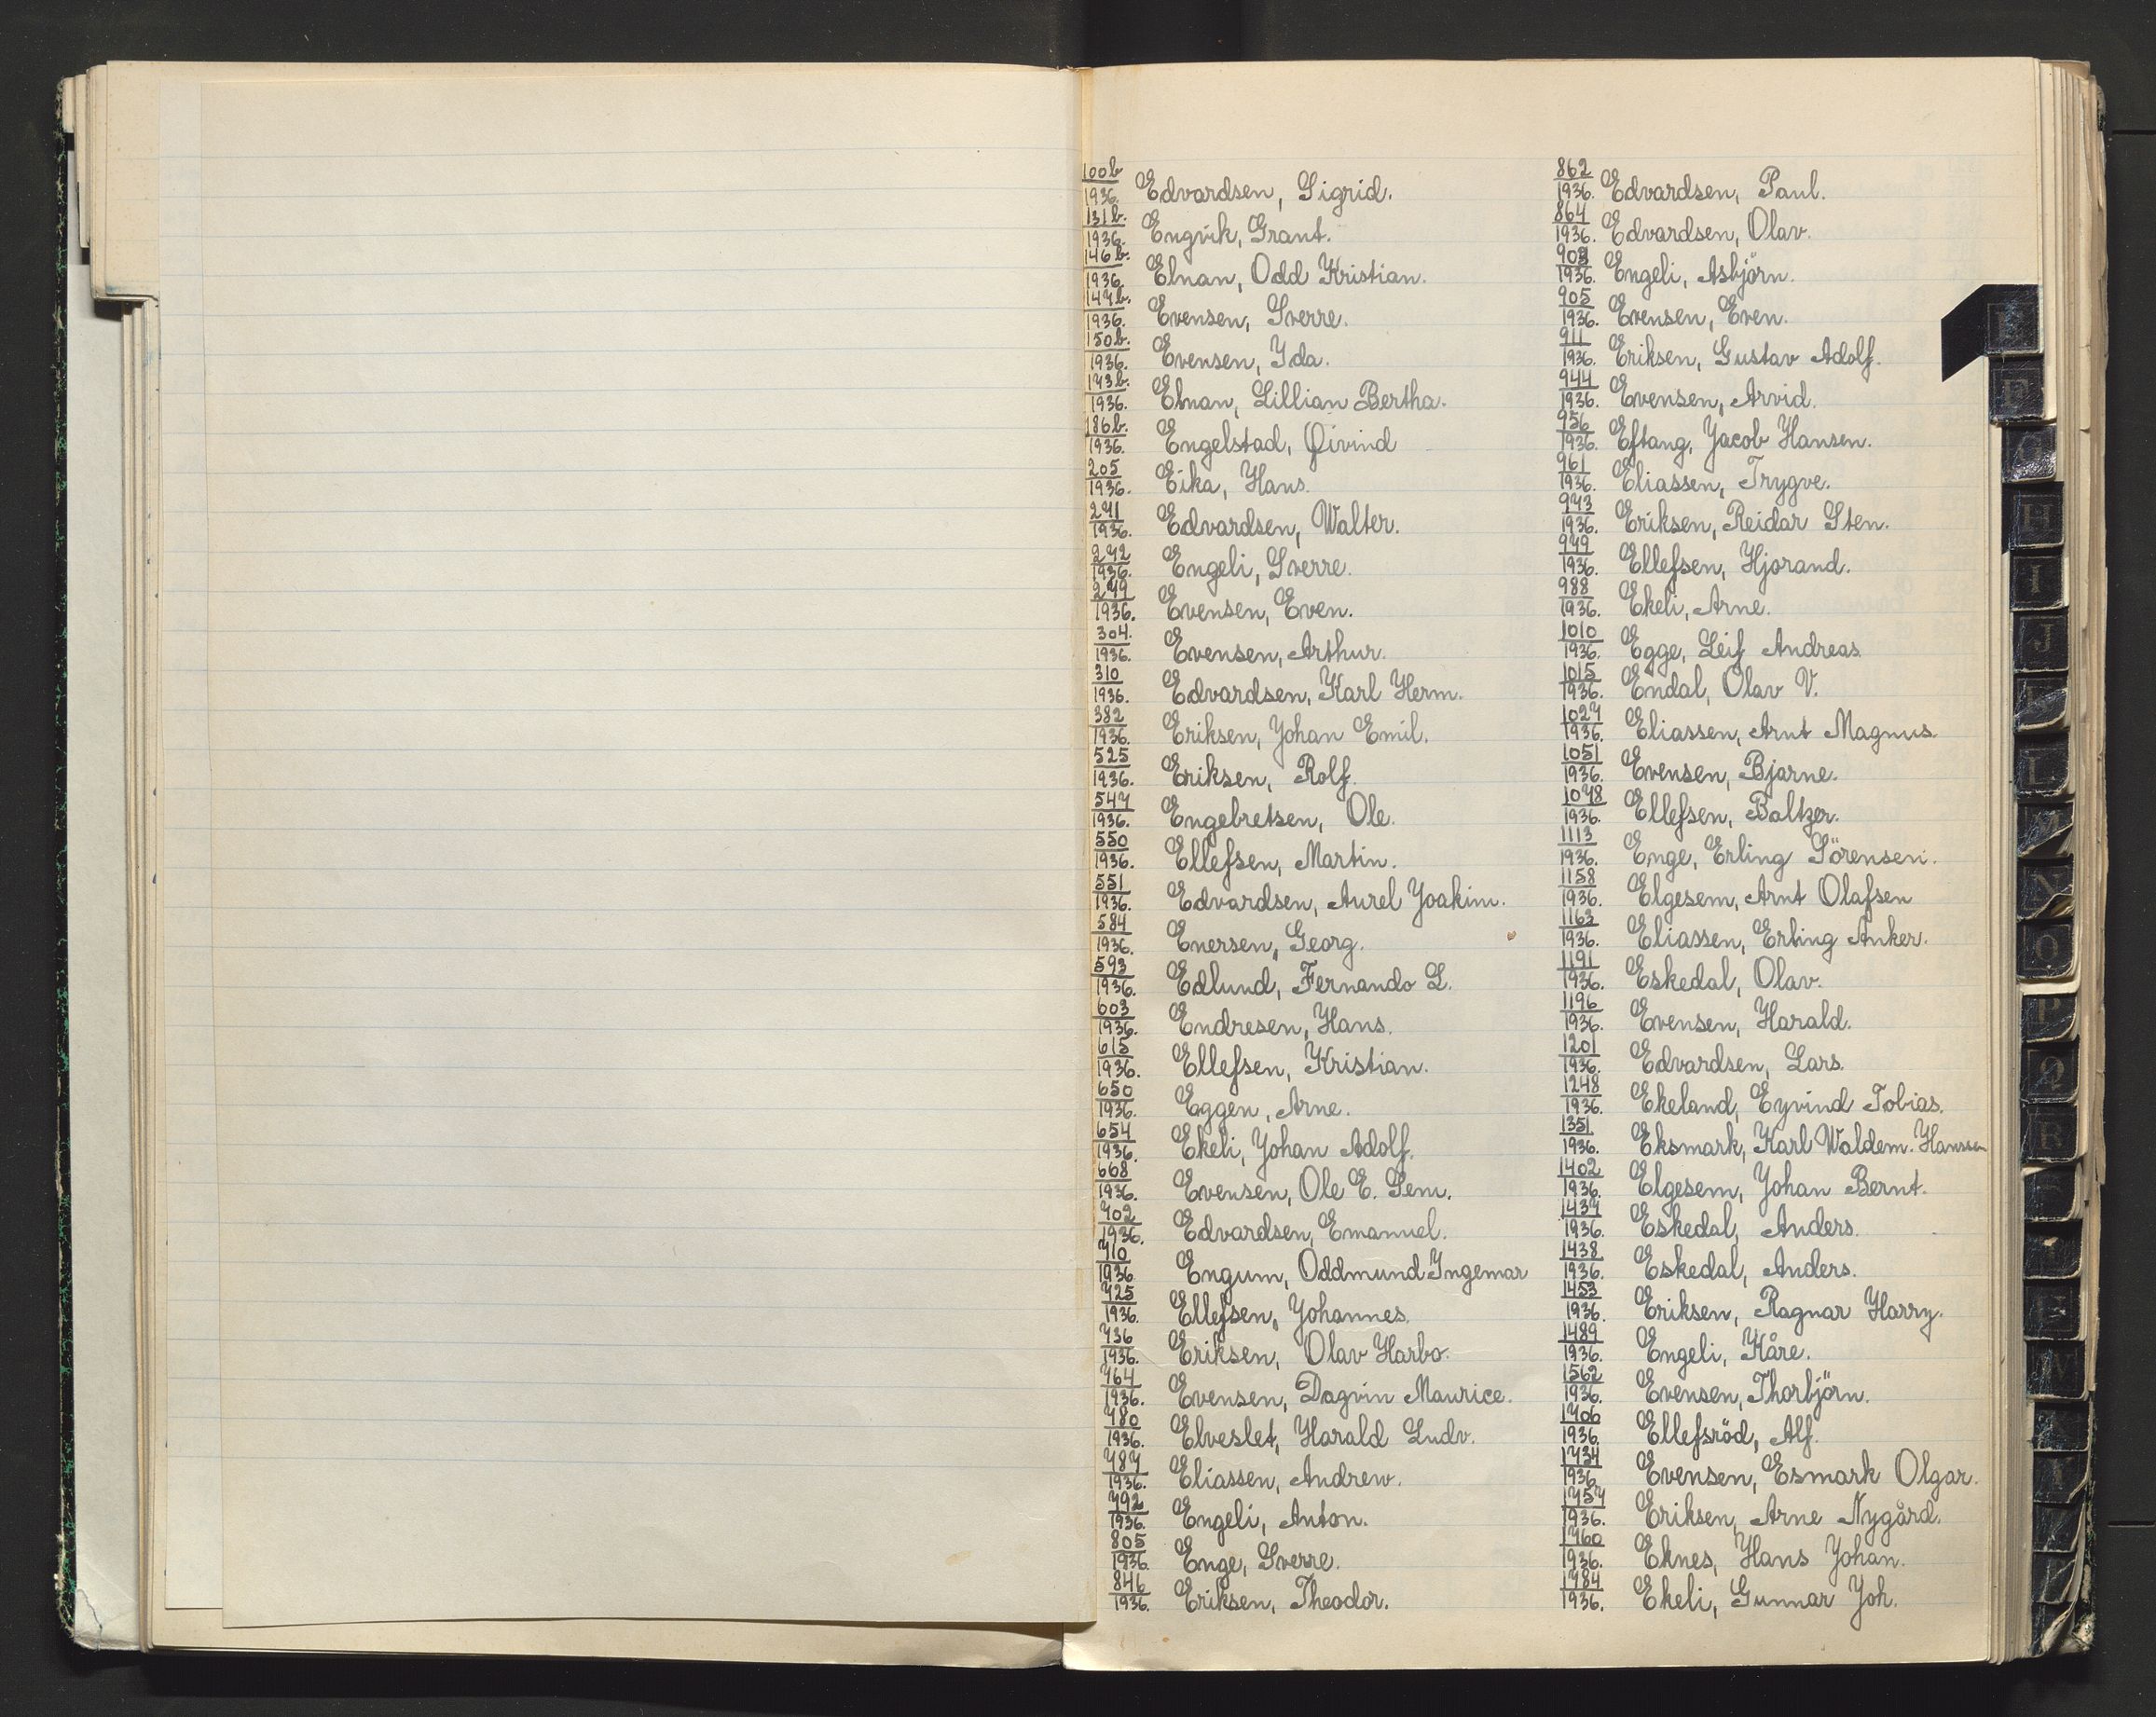 100b/1936. Edvardsen, Sigrid.
131b./1936. Engvik, Grant.
146b./1936. Elnan, Odd Kristian.
147b./1936. Evensen, Sverre.
150b./1936. Evensen, Yda.
173b./1936. Elnan, Lillian Bertha.
186b./1936. Engelstad, Øivind
205/1936. Eika, Hans.
271/1936. Edvardsen, Walter.
272/1936. Engeli, Sverre.
279/1936. Evensen, Even.
304./1936. Evensen, Arthur.
310/1936. Edvardsen, Karl Herm.
382/1936. Eriksen, Johan Emil.
525/1936. Eriksen, Rolf.
547/1936. Engebretsen, Ole.
550/1936. Ellefsen, Martin.
551/1936. Edvardsen, Aurel Joakim.
584/1936. Enersen, Georg.
593/1936. Edlund, Fernando L.
603/1936. Endresen, Hans.
615/1936. Ellefsen, Kristian.
650/1936. Eggen, Arne.
654/1936. Ekeli, Johan Adolf.
668/1936. Evensen, Ole E. Sem.
702/1936. Edvardsen, Emanuel.
710/1936 Engum, Oddmund Ingemar
725/1936. Ellefsen, Johannes.
736/1936. Eriksen, Olav Harbo.
764/1936. Evensen, Dagvin Maurice.
780/1936. Elveslet, Harald Ludv.
787/1936. Eliassen, Andrew.
792/1936. Engeli, Anton.
805/1936. Enge, Sverre.
846/1936. Eriksen, Theodor.
862/1936. Edvardsen, Paul.
864/1936. Edvardsen, Olav.
1936. Engeli, Asbjörn.
905/1936. Evensen, Even.
911/1936. Eriksen, Gustav Adolf.
944/1936. Evensen, Arvid.
956/1936. Eftang, Jacob Hansen.
961/1936. Eliassen, Trygve.
973/1936. Eriksen, Reidar Sten.
979/1936. Ellefsen, Hjorand.
988/1936. Ekeli, Arne.
1010/1936. Egge, Leif Andreas.
1015/1936. Endal, Olav V.
1027/1936. Eliassen, Arnt Magnus.
1051/1936. Evensen, Bjarne.
1078/1936. Ellefsen, Baltzer.
1113/1936. Enge, Erling Sörensen.
1158/1936. Elgesem, Arnt Olafsen
1163/1936. Eliassen, Erling Anker.
1191/1936. Eskedal, Olav.
1196/1936. Evensen, Harald.
1201/1936. Edvardsen, Lars.
1248/1936. Ekeland, Eyvind Tobias.
1351/1936. Eksmark, Karl Waldem. Hanssen
1402/1936. Elgesem, Johan Bernt.
1437/1936. Eskedal, Anders.
1438/1936. Eskedal, Anders.
1453/1936. Eriksen, Ragnar Harry.
1489/1936. Engeli, Kåre.
1562/1936. Evensen, Thorbjörn.
1706/1936. Ellefsröd, Alf.
1734/1936. Evensen, Esmark Olgar.
1757/1936. Eriksen, Arne Nygård.
1760/1936. Eknes, Hans Johan.
1784/1936. Ekeli, Gunnar Joh.
E
F
G
H
I
J
L
M
N
O
P
Q
R